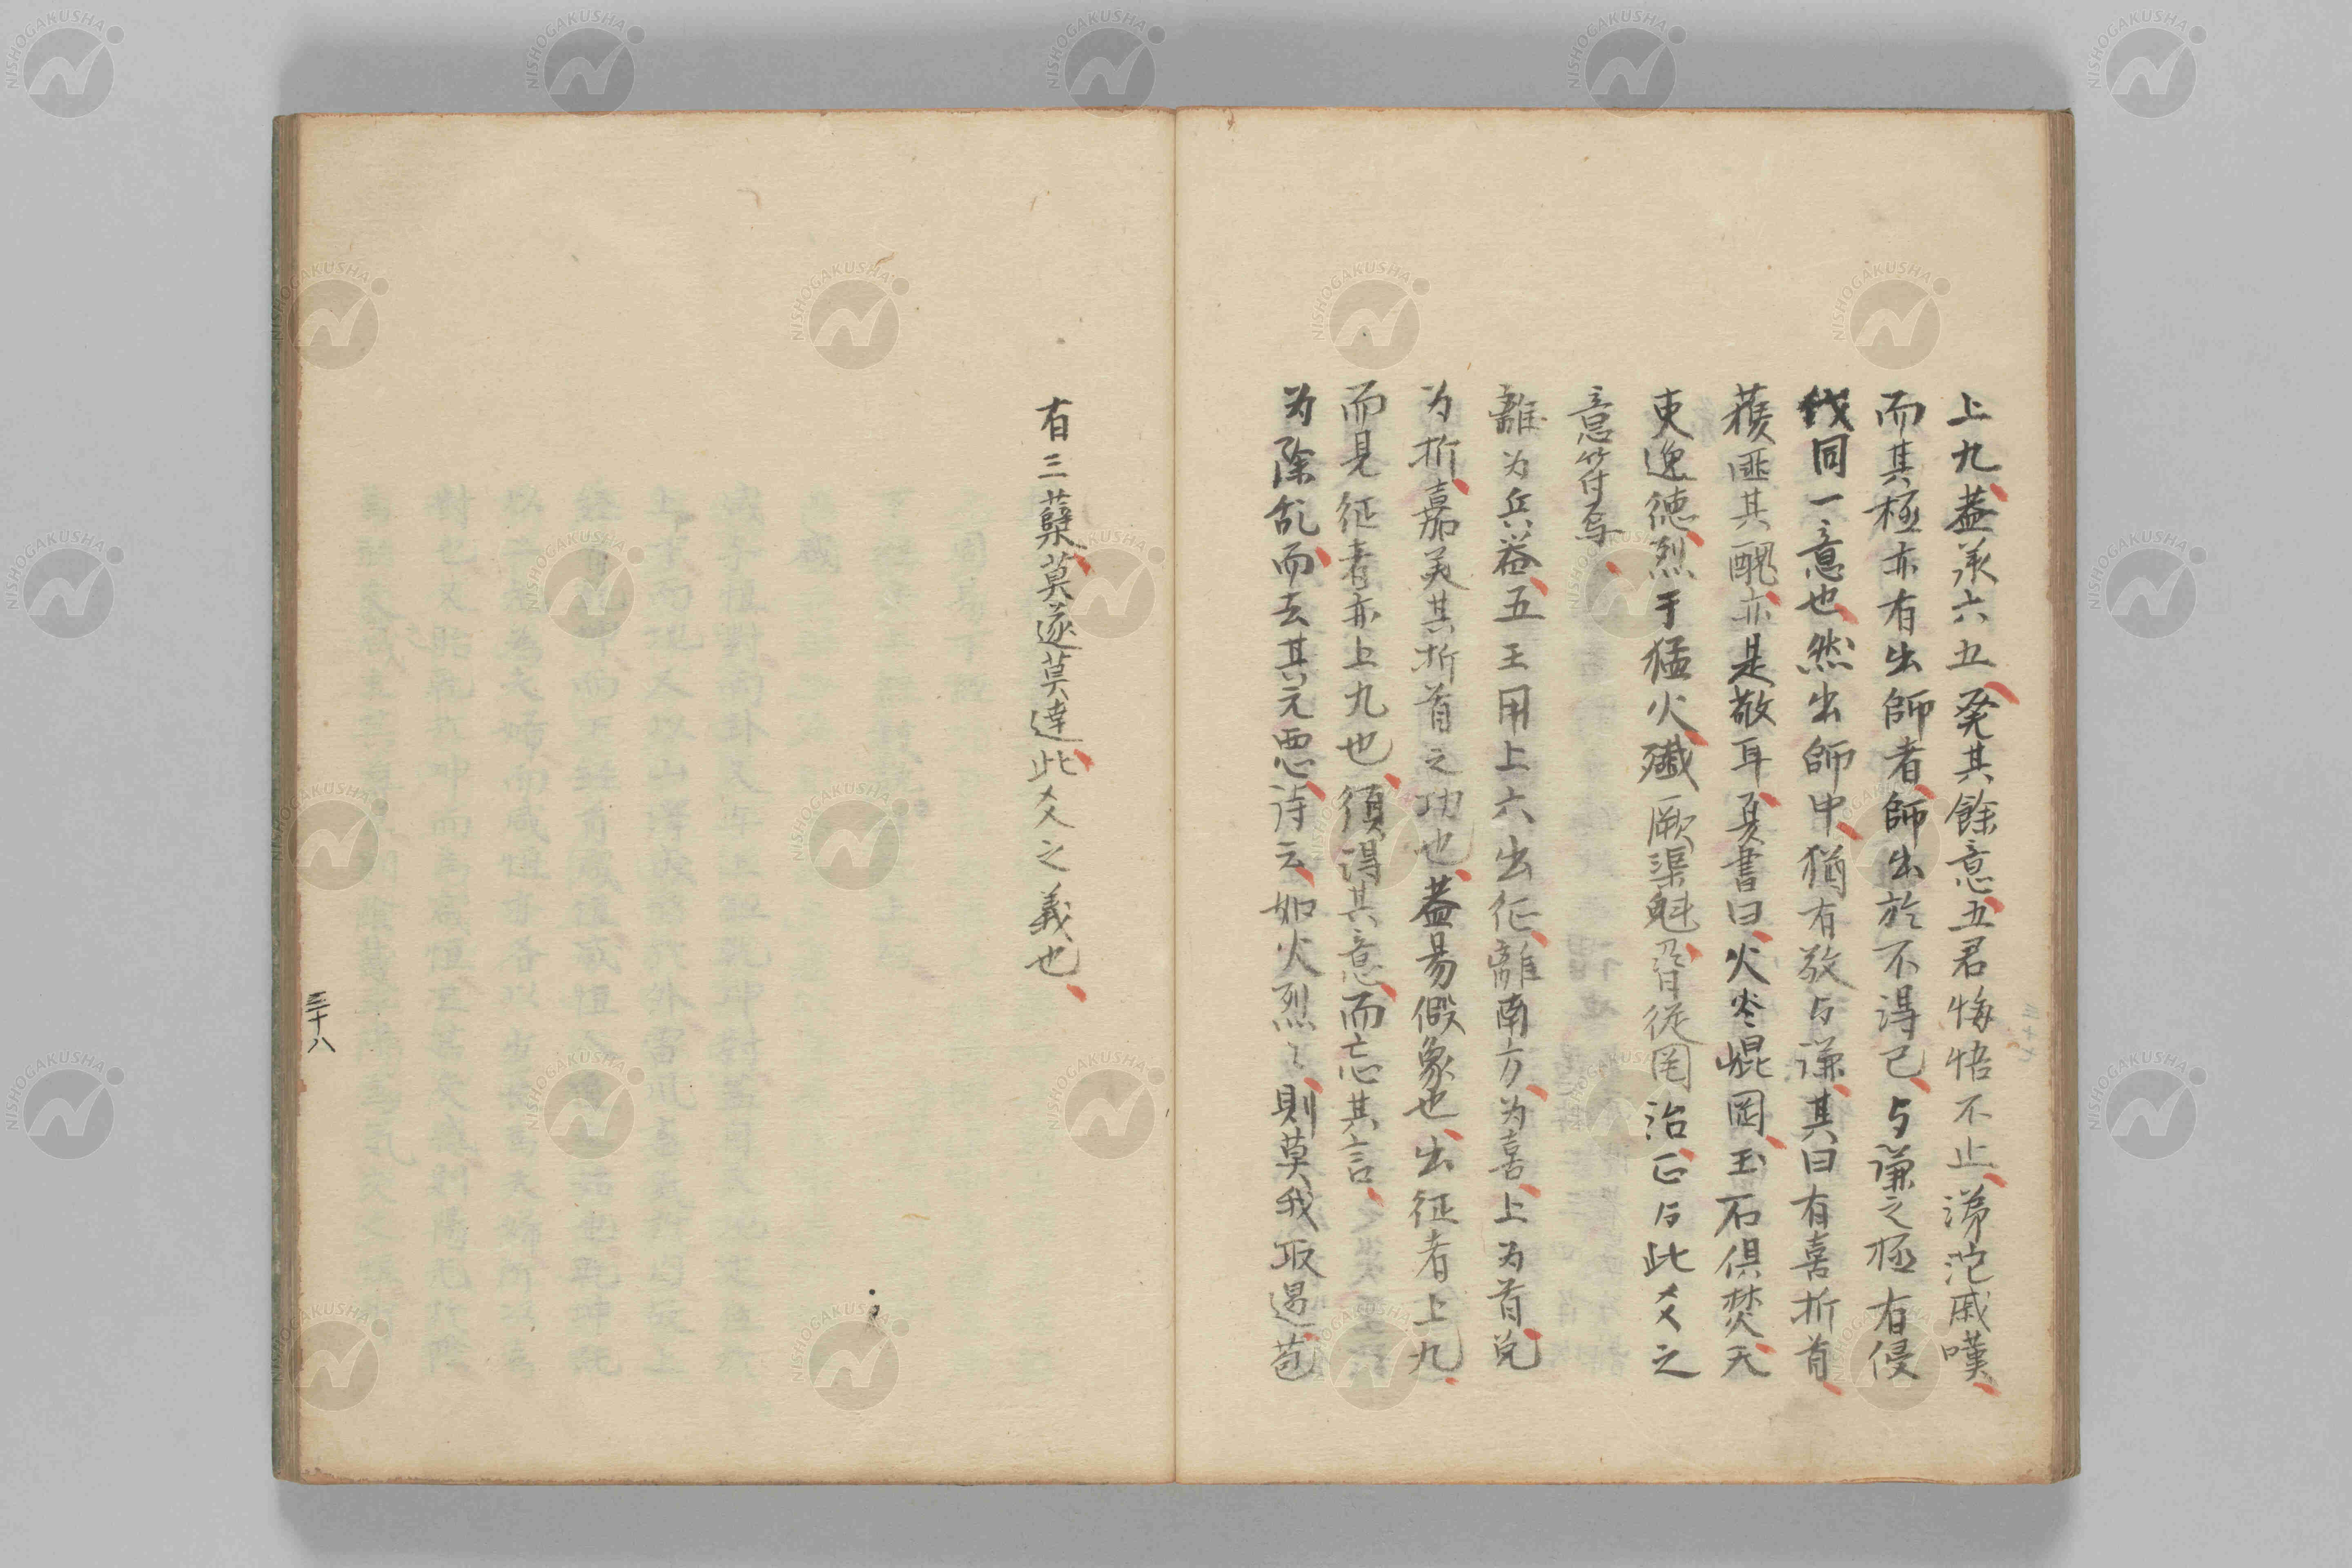 上九、蓋承六五、発其餘意、五君悔悟不止、涕沱戚嘆、
而其極亦有出師者、師出於不得已、与謙之極有侵
伐同一意也、然出師中、猶有敬与謙、其曰有喜折首、
獲匪其醜、亦是敬耳、夏書曰、火炎崐岡、玉石倶焚、天
吏逸徳、烈于猛火、殲厥渠魁、脅従罔治、正与此爻之
意符焉、
離为兵、益、五王用上六出征、離南方、为喜、上为首、兌
为折、嘉美其折首之功也、蓋易假象也、出征者上九、
而見征者亦上九也、須得其意、而忘其言、
为除乱、而去其元悪、詩云、如火烈〻、則莫我敢遏、苞
有三蘖、莫遂莫達、此爻之義也、
三十八
三十七
NISHOGAKUSHA